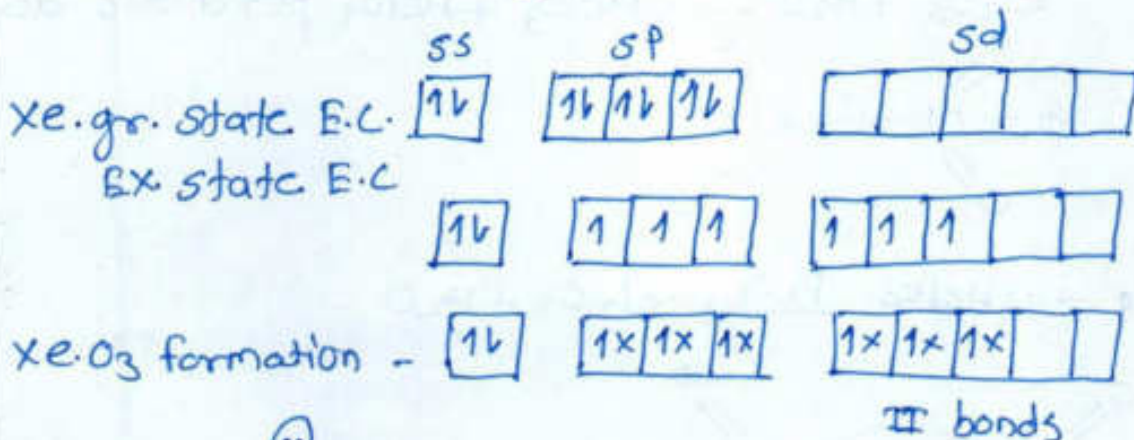 5s 5p 5d
Xe. gr. state E.C. 1↓ 1↓ 1↓ 1↓
Ex state E.C
1↓ 1 1 1 1 1 1
Xe.O3 formation - 1↓ 1x 1x 1x 1x 1x 1x
II bonds